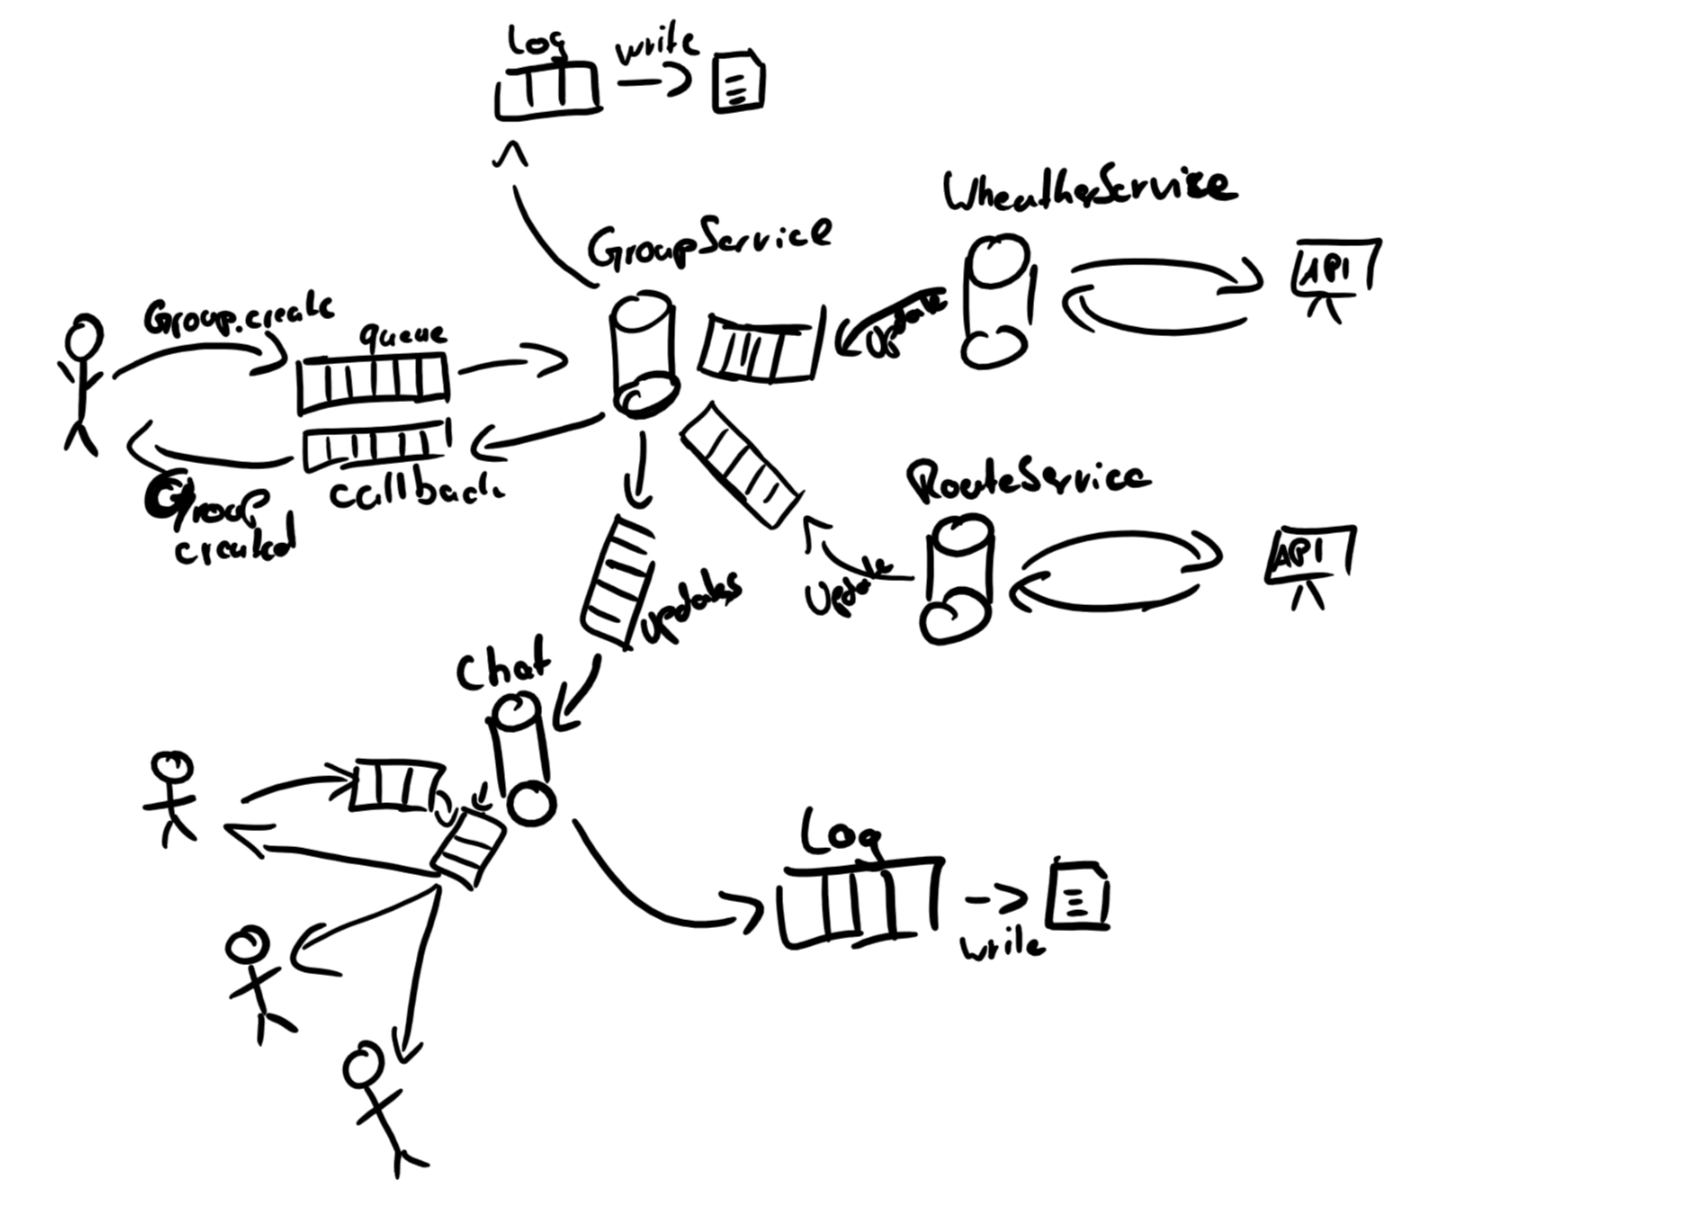 Log
write
WheatherService
GroupService
API
Group.create
queue
Update
callback
Group
created
RouteService
API
Update
updates
Chat
Log
write